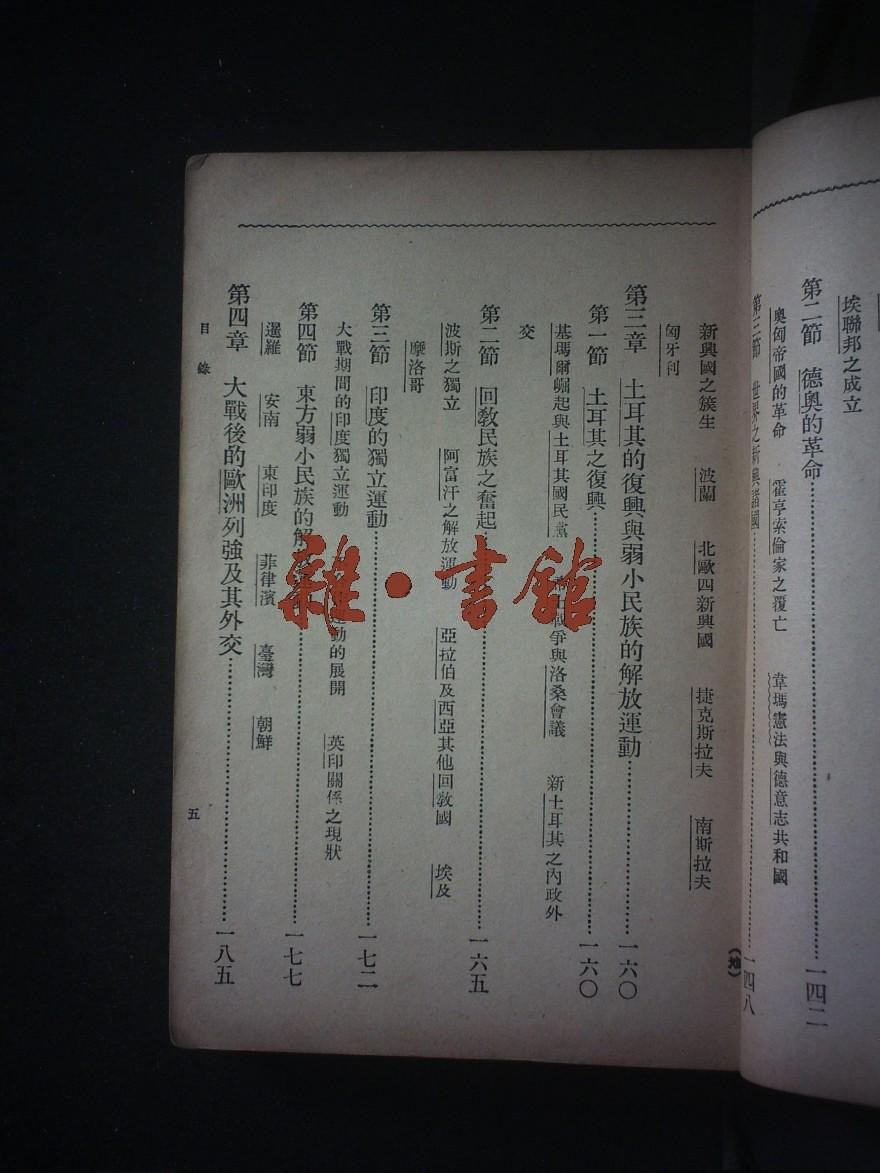 埃聯邦之成立
第二節 德奧的革命 一四二
奧匈帝國的革命 霍亨索倫家之覆亡 韋瑪憲法與德意志共和國
第三節 世界之新興諸國 一四八
新興國之簇生 波蘭 北歐四新興國 捷克斯拉夫 南斯拉夫
匈牙利
第三章 土耳其的復興與弱小民族的解放運動 一六〇
第一節 土耳其之復興 一六〇
基瑪爾崛起與土耳其國民黨 爭與洛桑會議 新土耳其之內政外
交
第二節 回教民族之奮起 一六五
波斯之獨立 阿富汗之解放運動 亞拉伯及西亞其他回教國 埃及
摩洛哥
第三節 印度的獨立運動 一七二
大戰期間的印度獨立運動 運動的展開 英印關係之現狀
第四節 東方弱小民族的解 一七七
暹羅 安南 東印度 菲律濱 臺灣 朝鮮
第四章 大戰後的歐洲列強及其外交 一八五
目錄
五
雜·書館